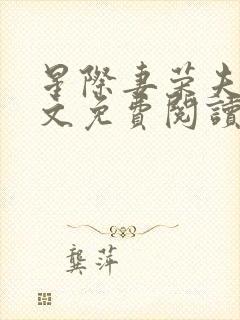 星際妻榮夫
文免費閱讀
龔萍